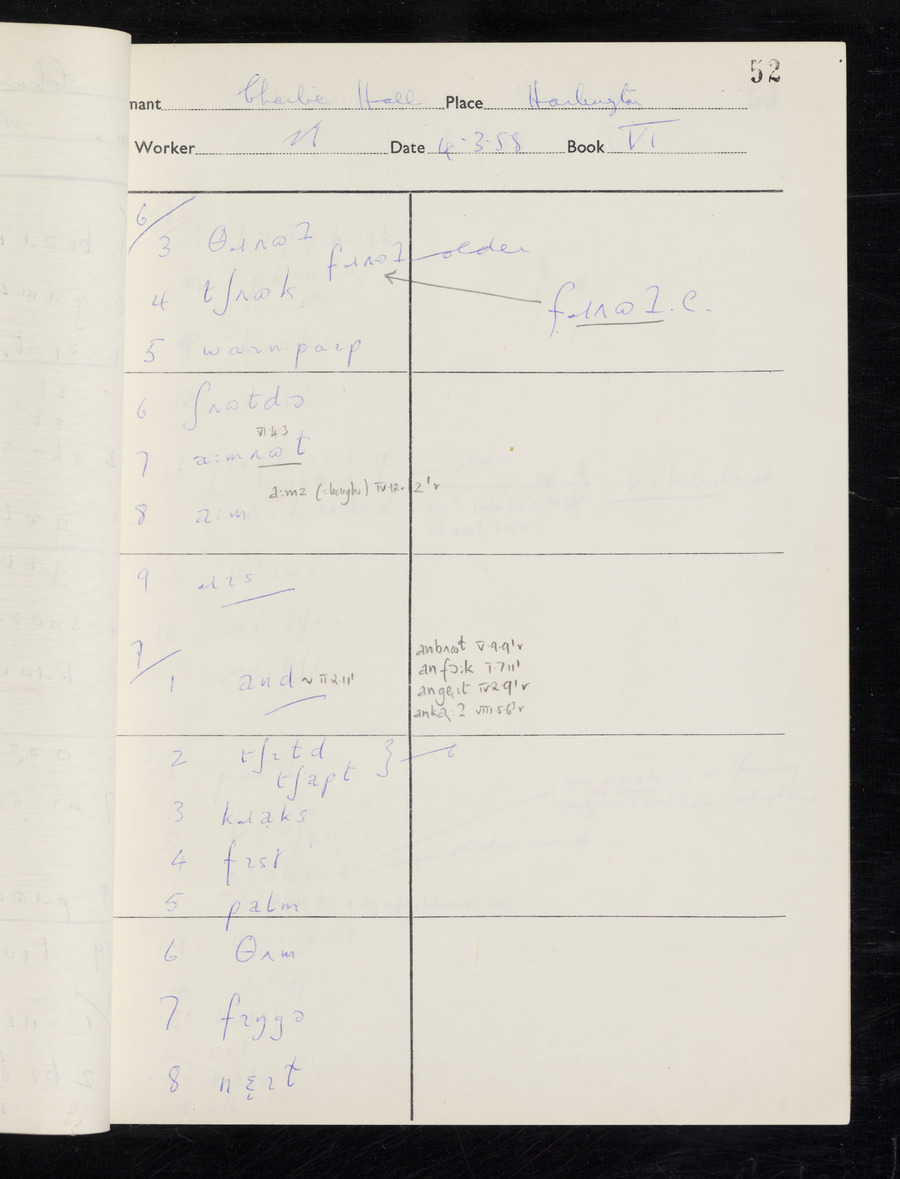 52
nant Charlie Hall Place Harlington
Worker Date 4.3.58 Book VI
6/
3 θɹʌɷʔ
fɹʌɷʔ older
4 tʃʌɷk
fɹʌɷʔ. c.
5
6 ʃʌɷtdə
VI.4.3
7 a:mʌɷt
a:mz (=boughs) IV.12.2'r
8 a:m
9
7/
1 and ~ II.2.11'
anbʌɷt V.9.9'r
anfɔ:k I.7.11'
angɛɪt IV.2.9'r
anka:ʔ VIII.5.6²r
2 tʃɪtd
tʃapt } 6
3 kɹaks
4
5 palm
6 θʌm
7 fɪŋgə
8 nɛɪt